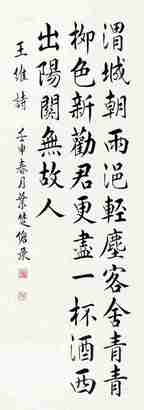 渭城朝雨浥輕塵客舍青青
柳色新勸君更盡一杯酒西
出陽關無故人
王維詩 壬申春月葉楚傖